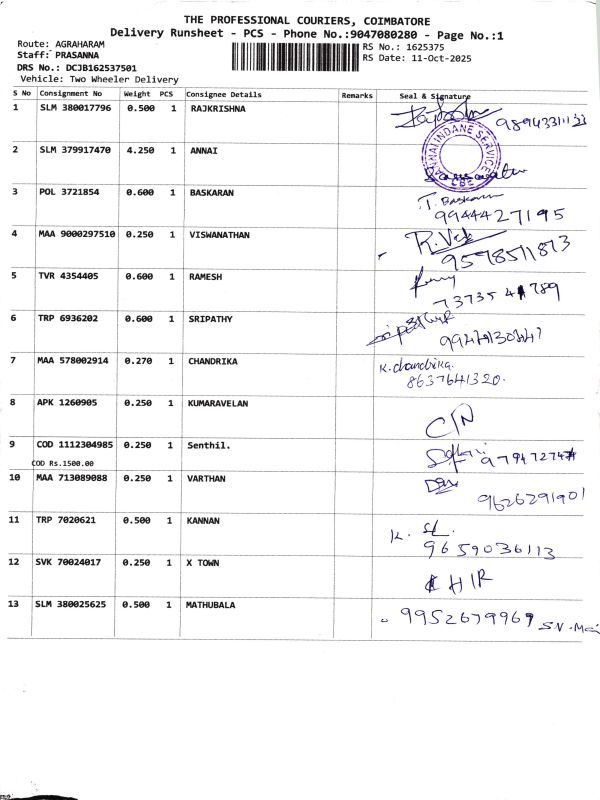 THE PROFESSIONAL COURIERS, COIMBATORE
Delivery Runsheet - PCS - Phone No.:9047080280 - Page No.:1
Route: AGRAHARAM
Staff: PRASANNA
DRS No.: DCJB162537501
Vehicle: Two Wheeler Delivery
RS No.: 1625375
RS Date: 11-Oct-2025
S No Consignment No Weight PCS Consignee Details Remarks Seal & Signature
1 SLM 380017796 0.500 1 RAJKRISHNA
2 SLM 379917470 4.250 1 ANNAI
ANNAI INDANE SERVICE
CBE
3 POL 3721854 0.600 1 BASKARAN T. Baskaran
9944427195
4 MAA 9000297510 0.250 1 VISWANATHAN
9578511873
5 TVR 4354405 0.600 1 RAMESH
6 TRP 6936202 0.600 1 SRIPATHY
7 MAA 578002914 0.270 1 CHANDRIKA K. chandrika.
8637641320.
8 APK 1260905 0.250 1 KUMARAVELAN
C/N
9 COD 1112304985 0.500 1 Senthil.
COD Rs.1500.00
10 MAA 713089088 0.250 1 VARTHAN
9626291901
11 TRP 7020621 0.500 1 KANNAN
9659036113
12 SVK 70024017 0.250 1 X TOWN
13 SLM 380025625 0.500 1 MATHUBALA 9952679969